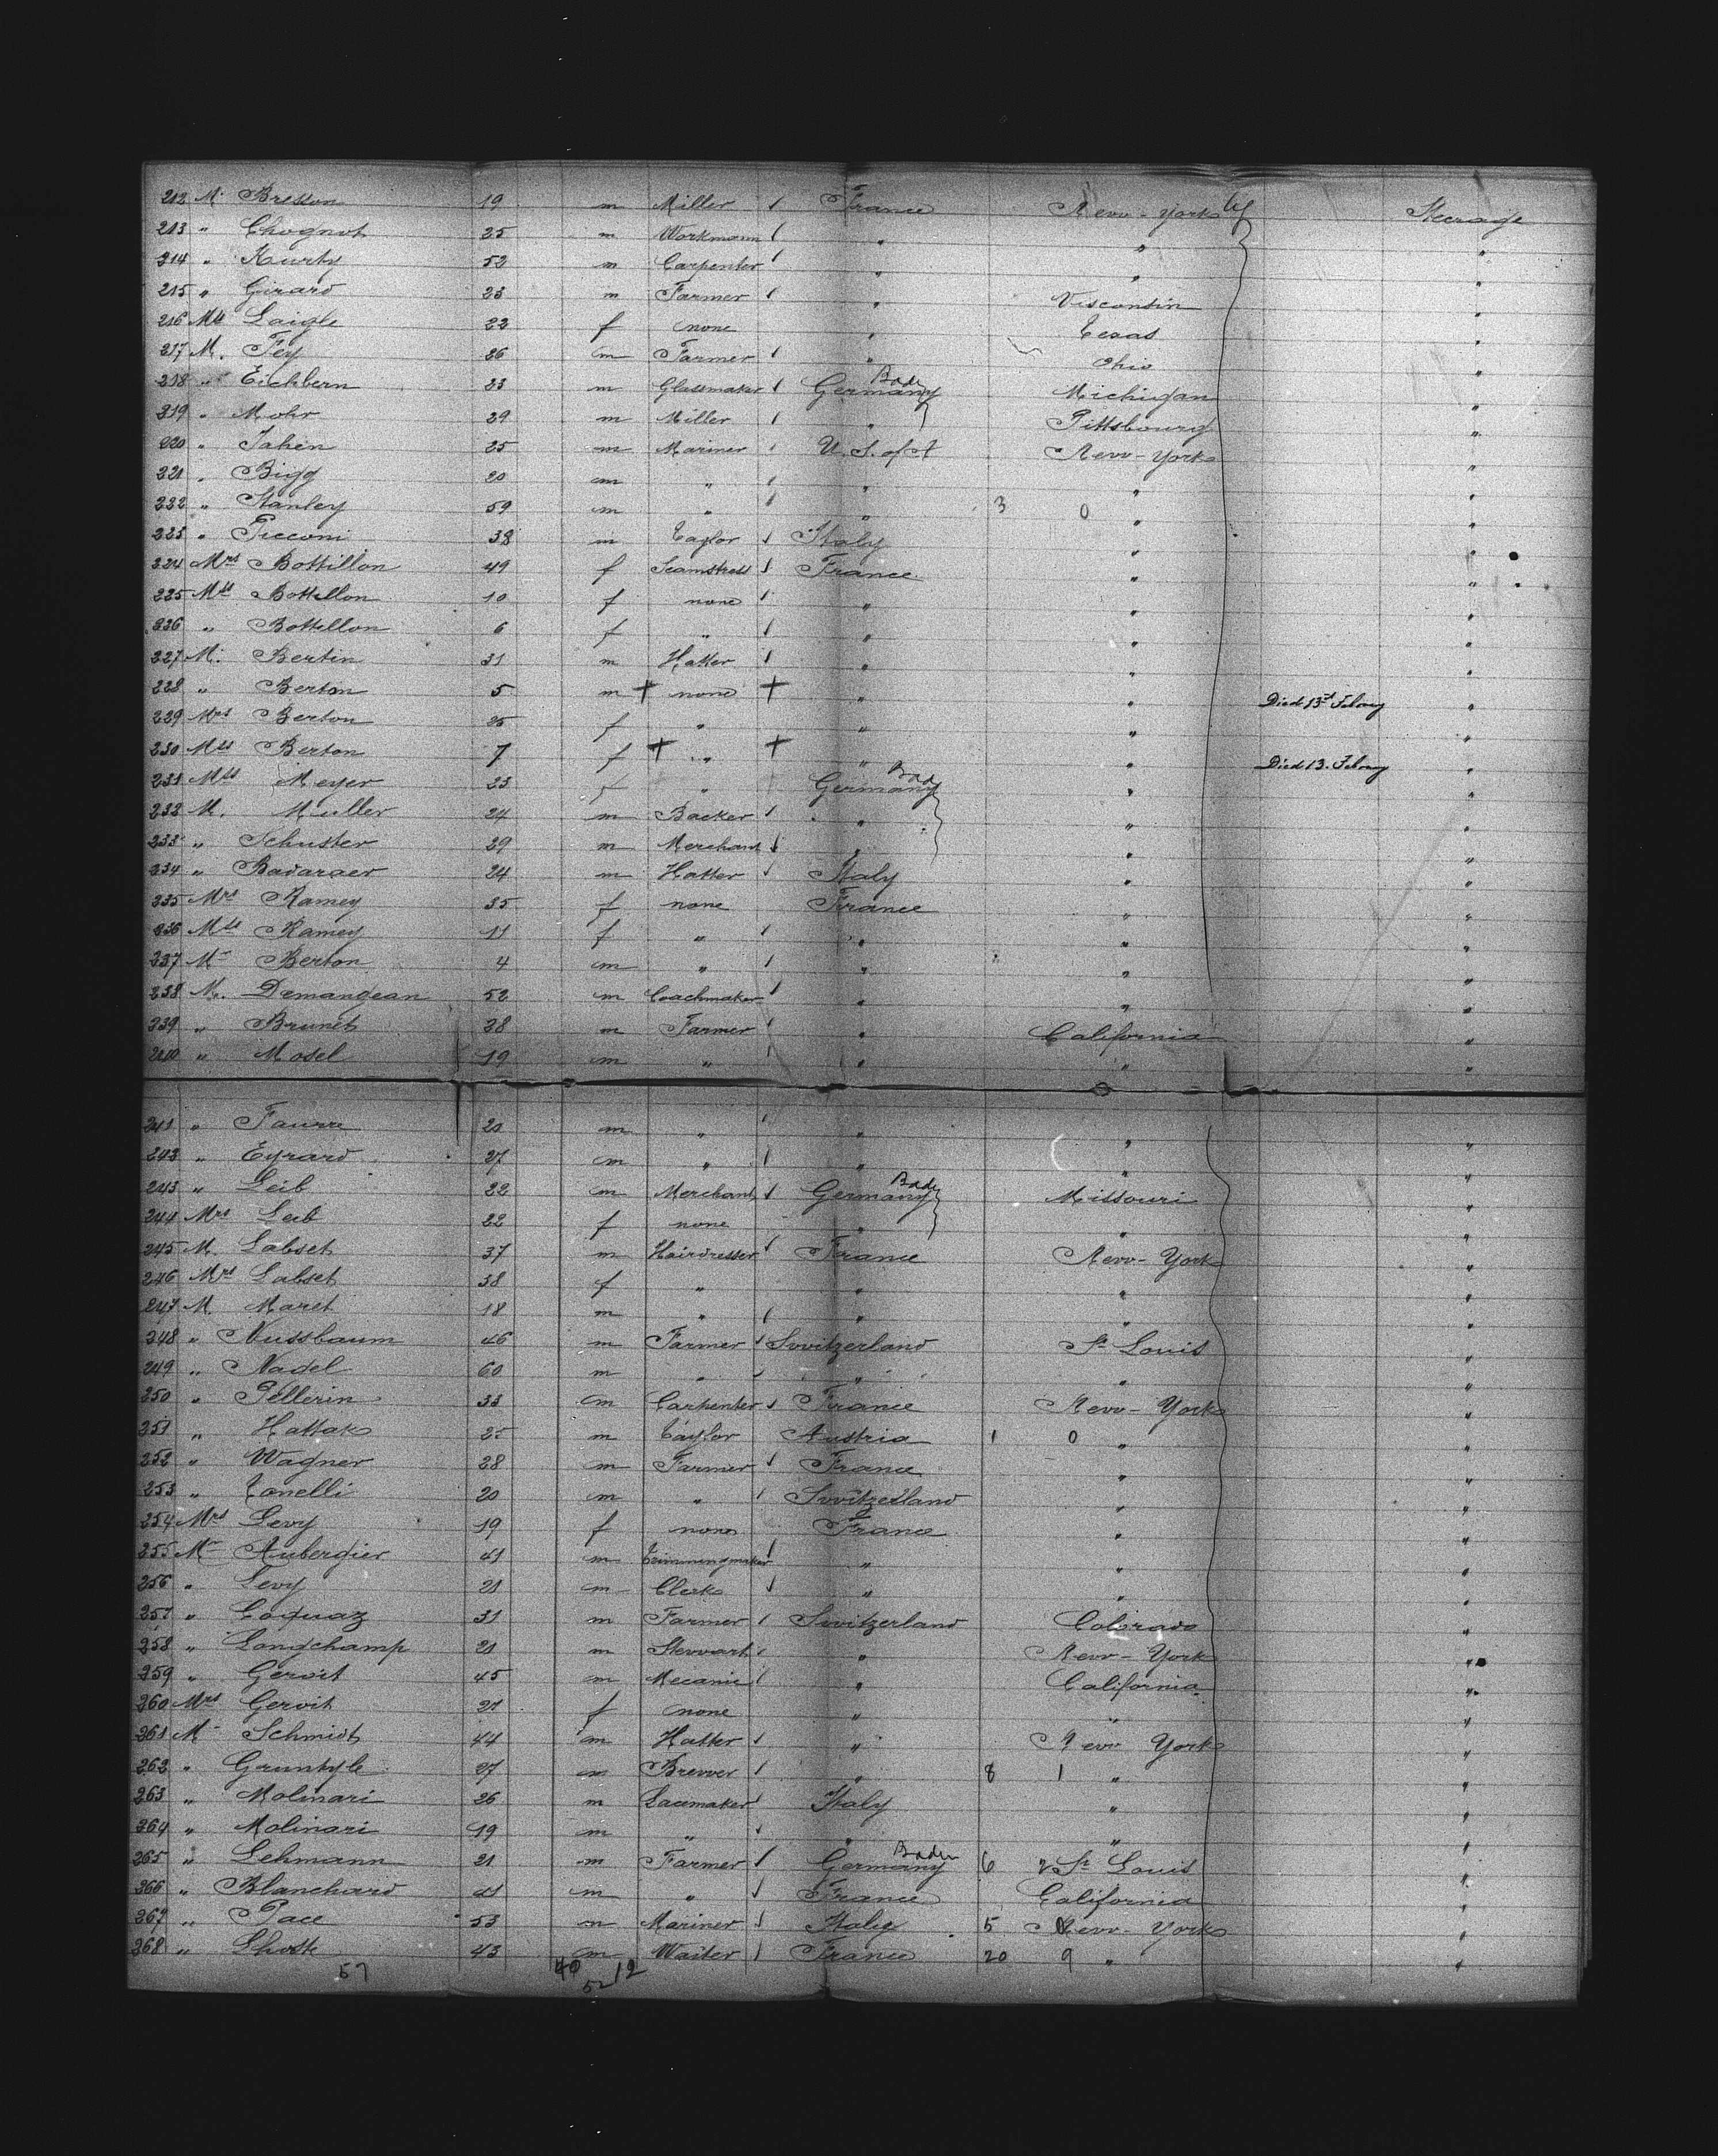 212 M. Breton 19 m Miller France New-York Steerage
213 " Chognot 25 m Workmann " " "
214 " Kurtz 52 m Carpenter " " "
215 " Girard 23 m Farmer " Visconsin "
216 Mlle Laigle 22 f none " Texas "
217 M. Fey 26 m Farmer " Ohio "
218 " Eichbern 23 m Glassmaker Germany Bade Michigan "
219 " Mohr 29 m Miller " Pittsbourg "
220 " Jahen 25 m Mariner U. S. of A New-York "
221 " Bigg 20 m " " " "
222 " Stanley 59 m " " 3 0 " "
223 " Picconi 38 m Taylor Italy " "
224 Mrs Bottillon 49 f Seamstress France " "
225 Mlle Bottillon 10 f none " " "
226 " Bottillon 6 f " " " "
227 M. Bertin 31 m Hatter " " "
228 " Berton 5 m + none + " " Died 13th Febuary "
229 Mrs Berton 25 f " " " "
230 Mlle Berton 7 f + " + " " Died 13. Febuary "
231 Mlle Meyer 23 f " Germany Bade " "
232 M. Muller 24 m Backer " " "
233 " Schuster 29 m Merchant " " "
234 " Badaraer 24 m Hatter Italy " "
235 Mrs Ramey 35 f none France " "
236 Mlle Ramey 11 f " " " "
237 M. Berton 4 m " " " "
238 M. Demangean 52 m Coachmaker " " "
239 " Brunet 38 m Farmer " California "
240 " Mosel 19 m " " " "
241 " Faurre 21 m " " " "
242 " Eyrard 27 m " " " "
243 " Leib 22 m Merchant Germany Bade Missouri "
244 Mrs Leib 22 f none " " "
245 M. Labset 37 m Hairdresser France New-York "
246 Mrs Labset 38 f " " " "
247 M Maret 18 m " " " "
248 " Nussbaum 46 m Farmer Switzerland St Louis "
249 " Nadel 60 m " " " "
250 " Pellerin 33 m Carpenter France New-York "
251 " Hattak 25 m Taylor Austria 1 0 " "
252 " Wagner 28 m Farmer France " "
253 " Tonelli 20 m " Switzerland " "
254 Mrs Levy 19 f none France " "
255 M. Aubergier 41 m Trimmingmaker " " "
256 " Levy 21 m Clerk " " "
257 " Coquaz 31 m Farmer Switzerland Colorado "
258 " Longchamp 21 m Stewart " New-York "
259 " Gervit 45 m Mecanic " California "
260 Mrs Gervit 21 f none " " "
261 M. Schmidt 44 m Hatter " New York "
262 " Gruntyle 27 m Brewer " 8 1 " "
263 " Molinari 26 m Lacemaker Italy " "
264 " Molinari 19 m " " " "
265 " Lehmann 21 m Farmer Germany Baden 6 2 St Louis "
266 " Blanchard 41 m " France California "
267 " Pace 53 m Mariner Italy 5 New-York "
268 " Lhoste 43 m Waiter France 20 9 " "
57 40 12
52